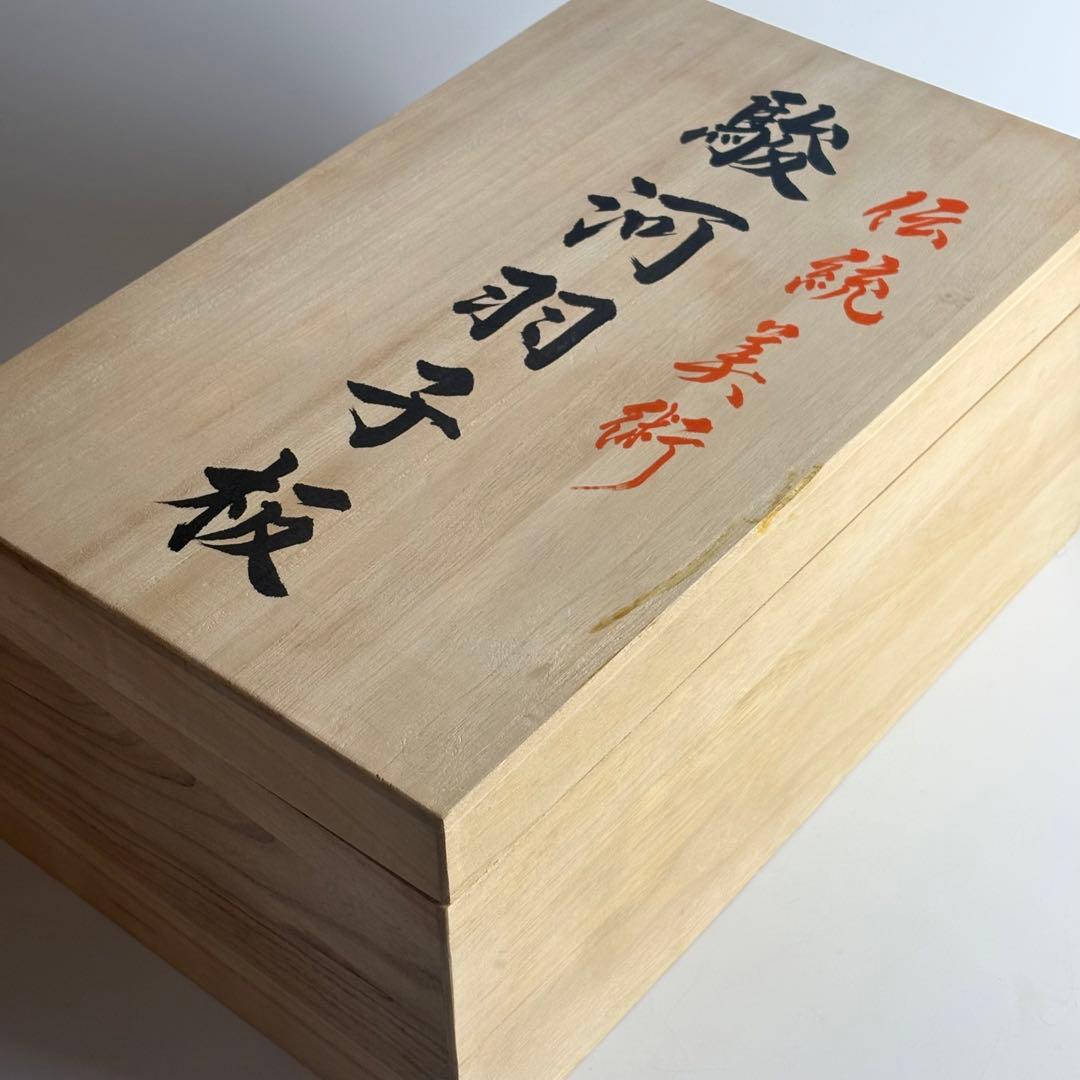 伝統美術
駿河羽子板